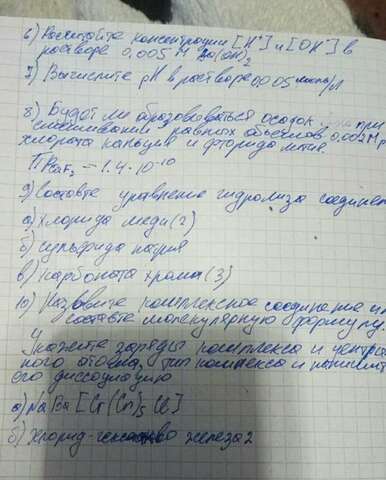 6) Рассчитайте концентрации [H⁺] и [OH⁻] в
растворе 0,005 М Ba(OH)₂
7) Вычислите pH в растворе 0,005 моль/л
8) Будет ли образовываться осадок при
смешивании равных объемов 0,002М р
хлората кальция и фторида лития.
ПРCaF₂ - 1.4·10⁻¹⁰
9) Составте уравнение гидролиза соединен
а) Хлорида меди(2)
б) Сульфида натрия
в) Карбоната хрома(3)
10) Назовите комплексное соединение ил
составте молекулярную формулу.
Укажите заряды комплекса и централь
ного атома, тип комплекса и напишит
его диссоциацию
а) NaBa[Cr(Cn)₅Cl]
б) Хлорид железа 2